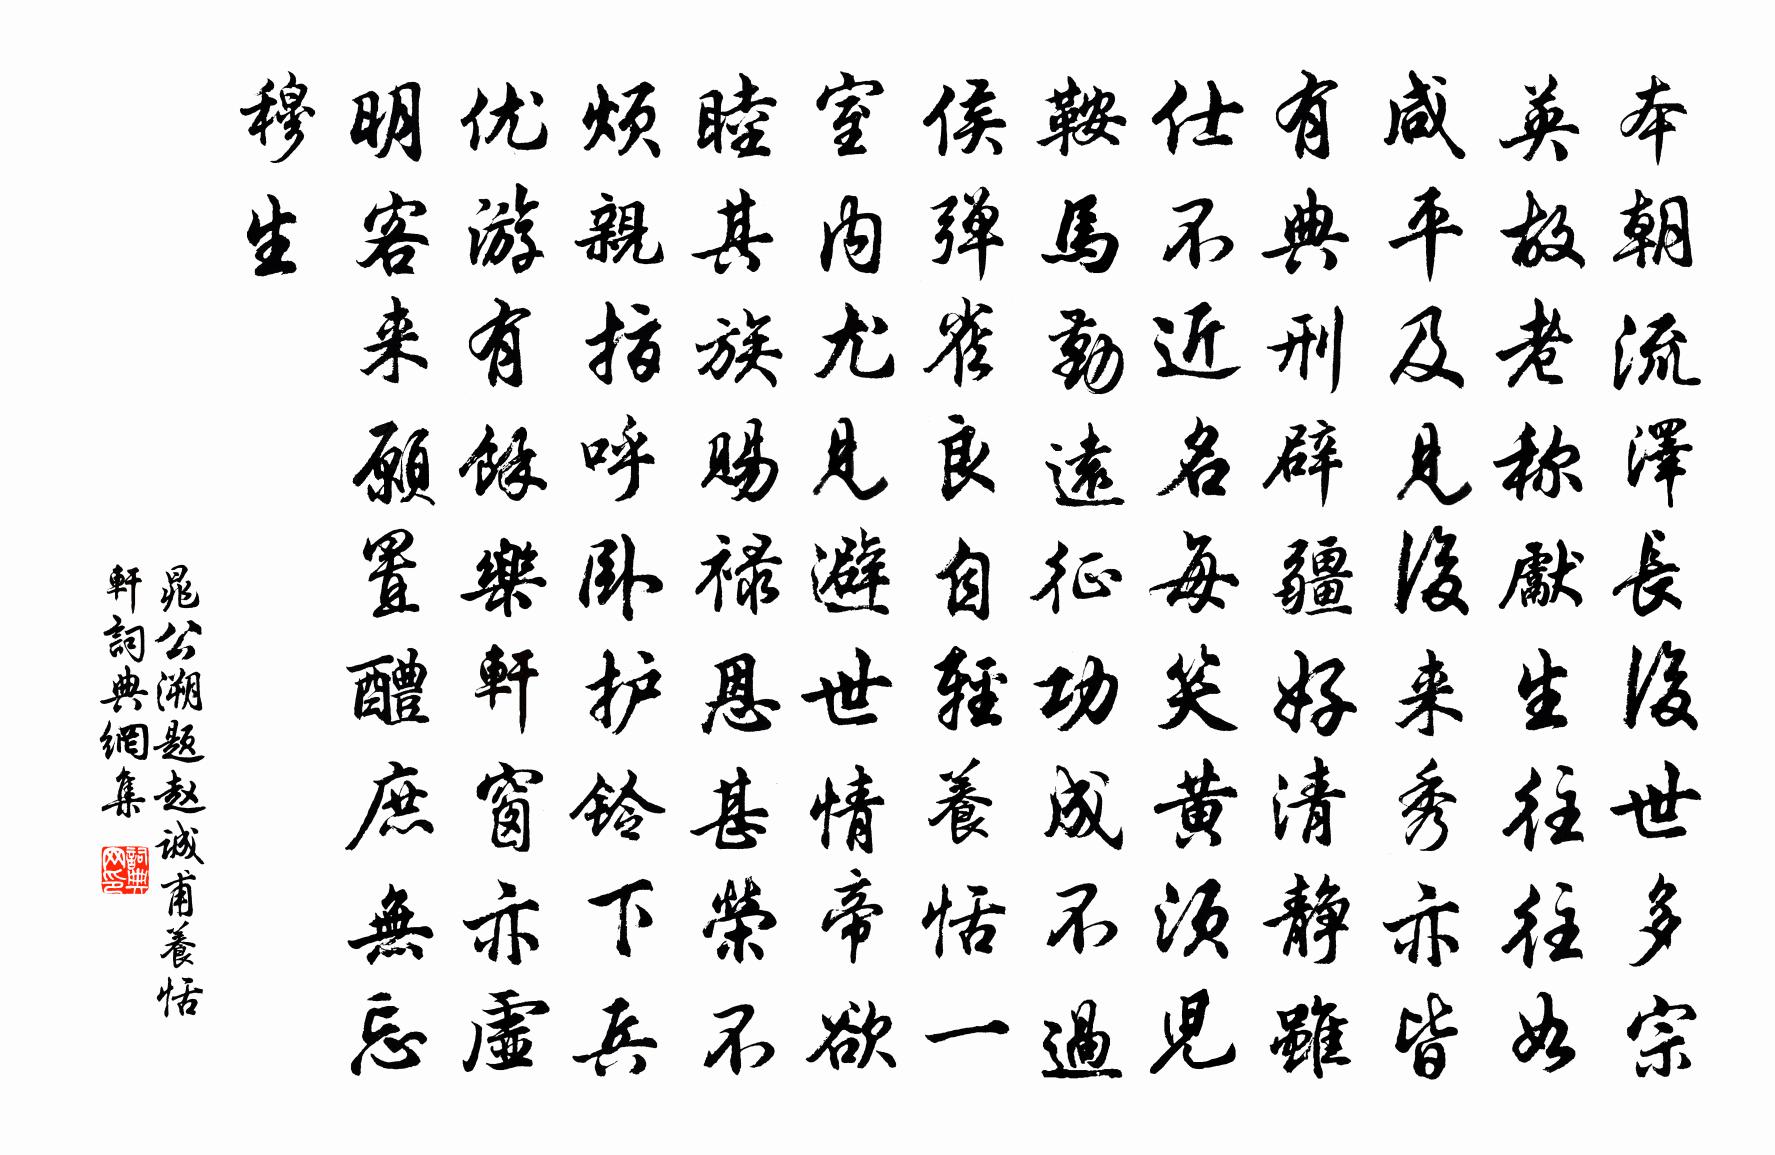 本朝流澤長後世多宗
英故老称獻生往往如
咸平及見後来秀亦皆
有典刑辟疆好清静雖
仕不近名每笑黄须児
鞍馬勤遠征功成不過
侯弹雀良自輕養恬一
室内尤見避世情帝欲
睦其族賜禄恩甚榮不
烦親指呼卧护鈴下兵
优游有餘樂軒窗亦虚
明客来願置醴庶無忘
穆生
晁公溯题赵诚甫養恬
軒詞典網集
詞典
网印